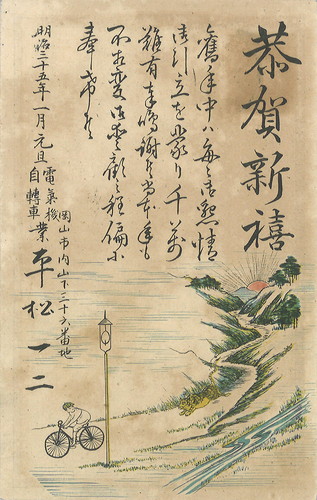 恭賀新禧
舊年中ハ毎々御懇情
御引立を蒙り千萬
難有奉鳴謝候尚本年も
不相変御愛顧之程偏ニ
奉希候
明治三十五年一月元旦
岡山市内山下三十六番地
電氣機
自轉車
業
平松一二